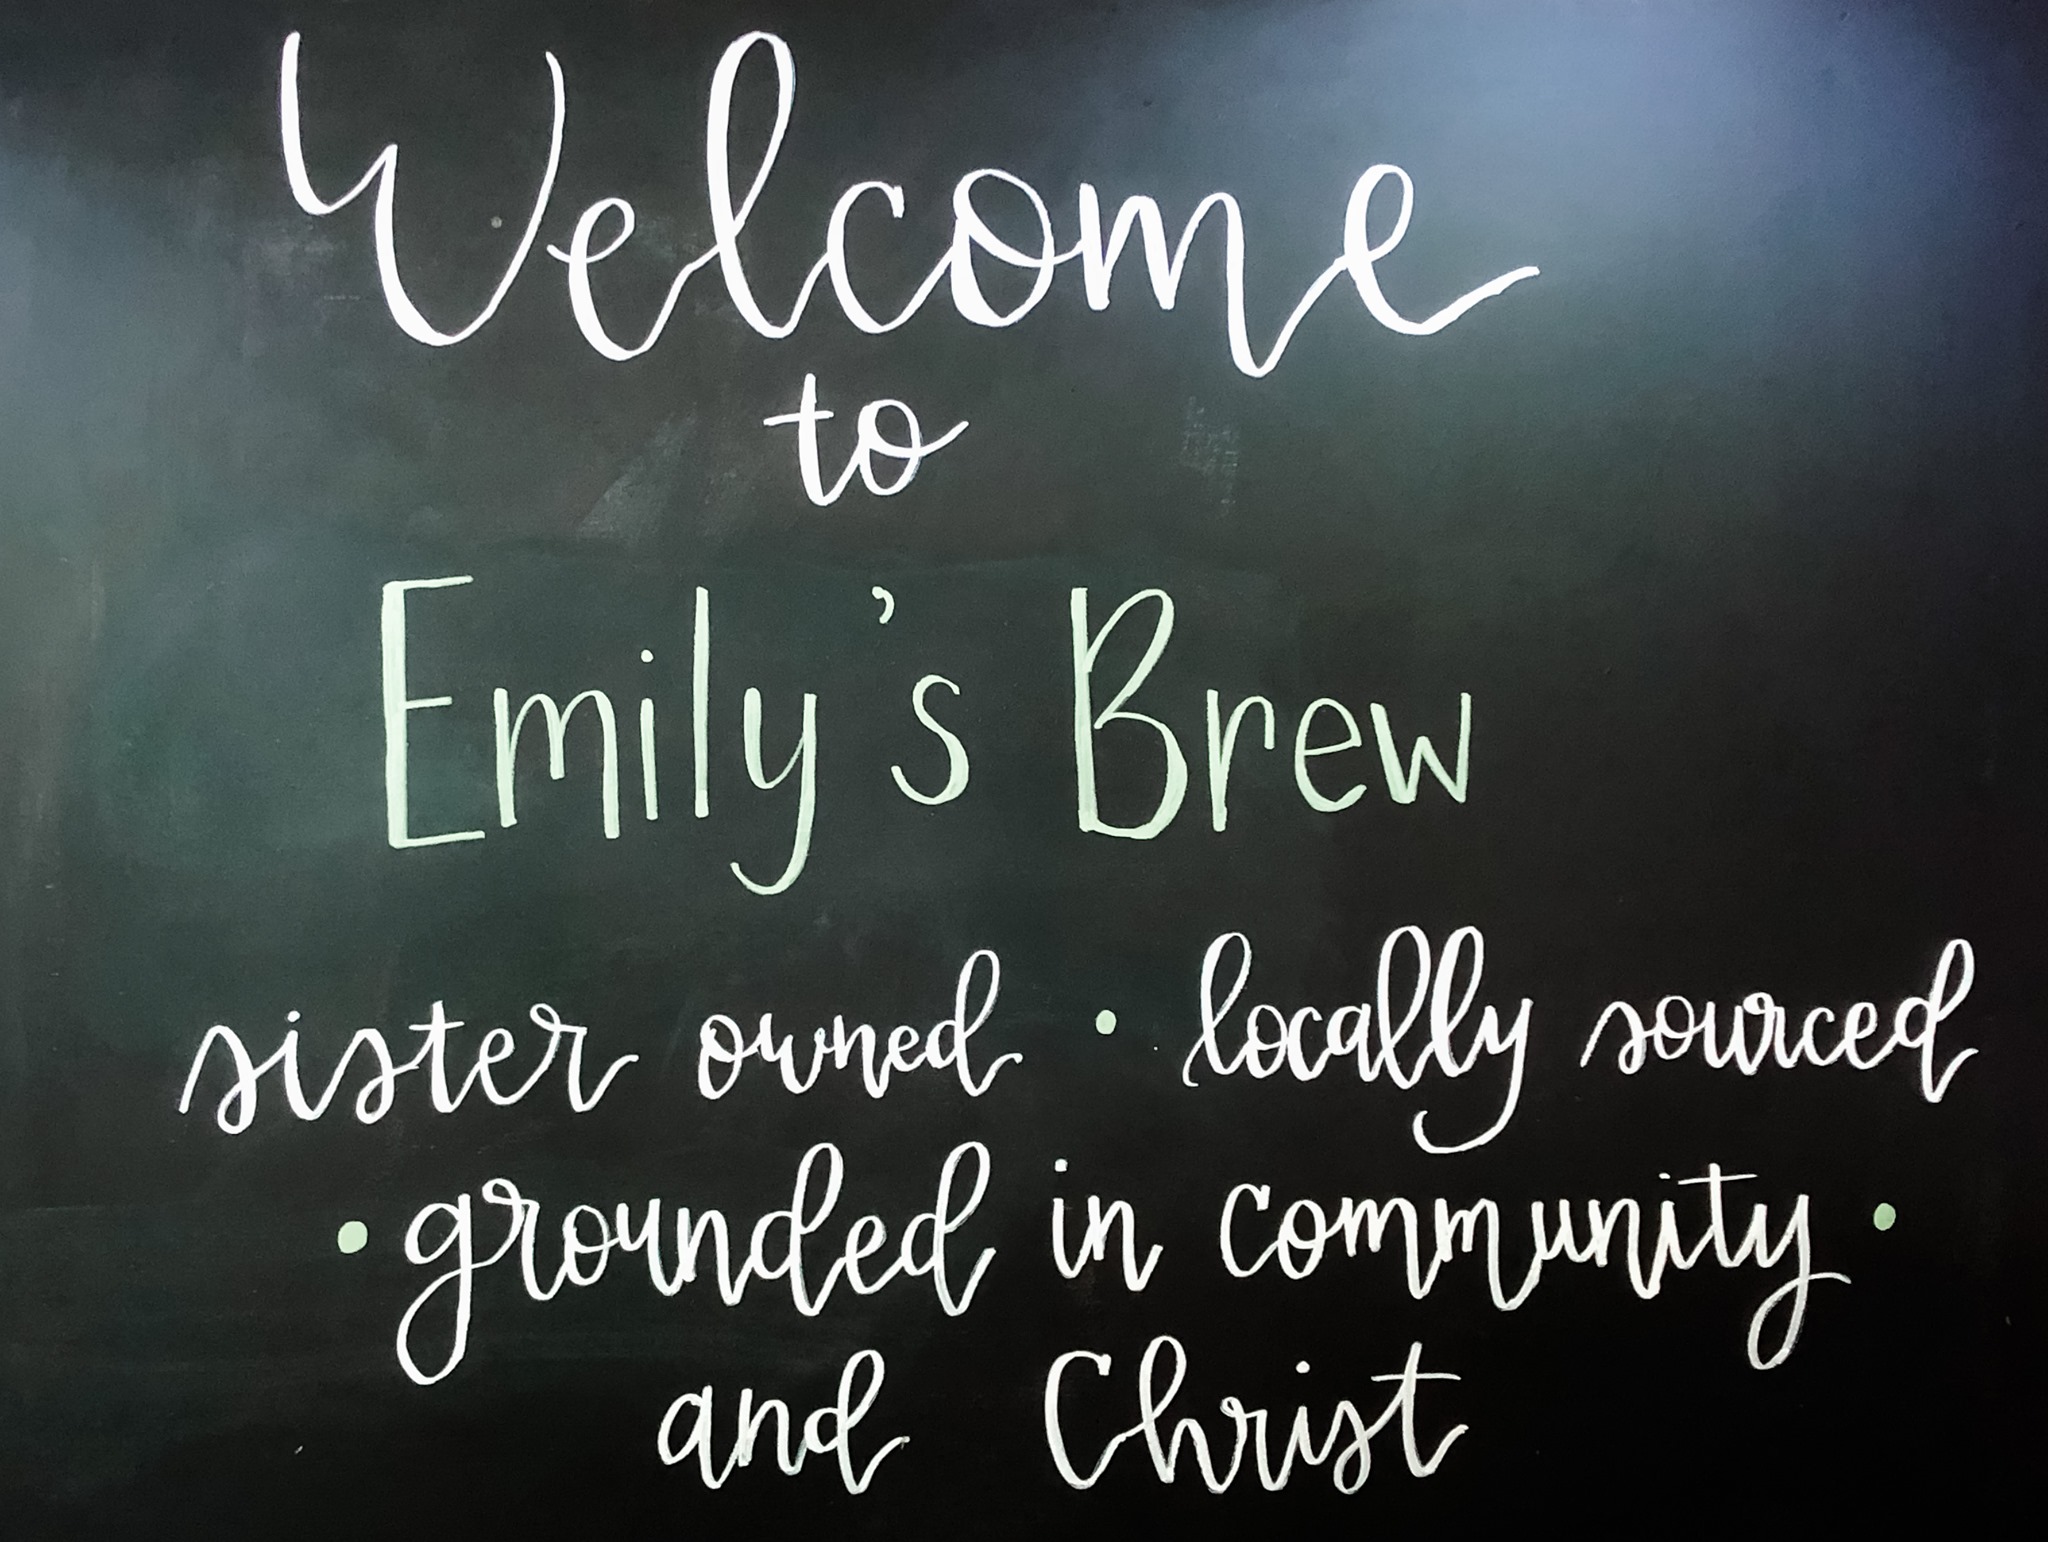 Welcome
to
Emily's Brew
sister owned • locally sourced
• grounded in community •
and Christ